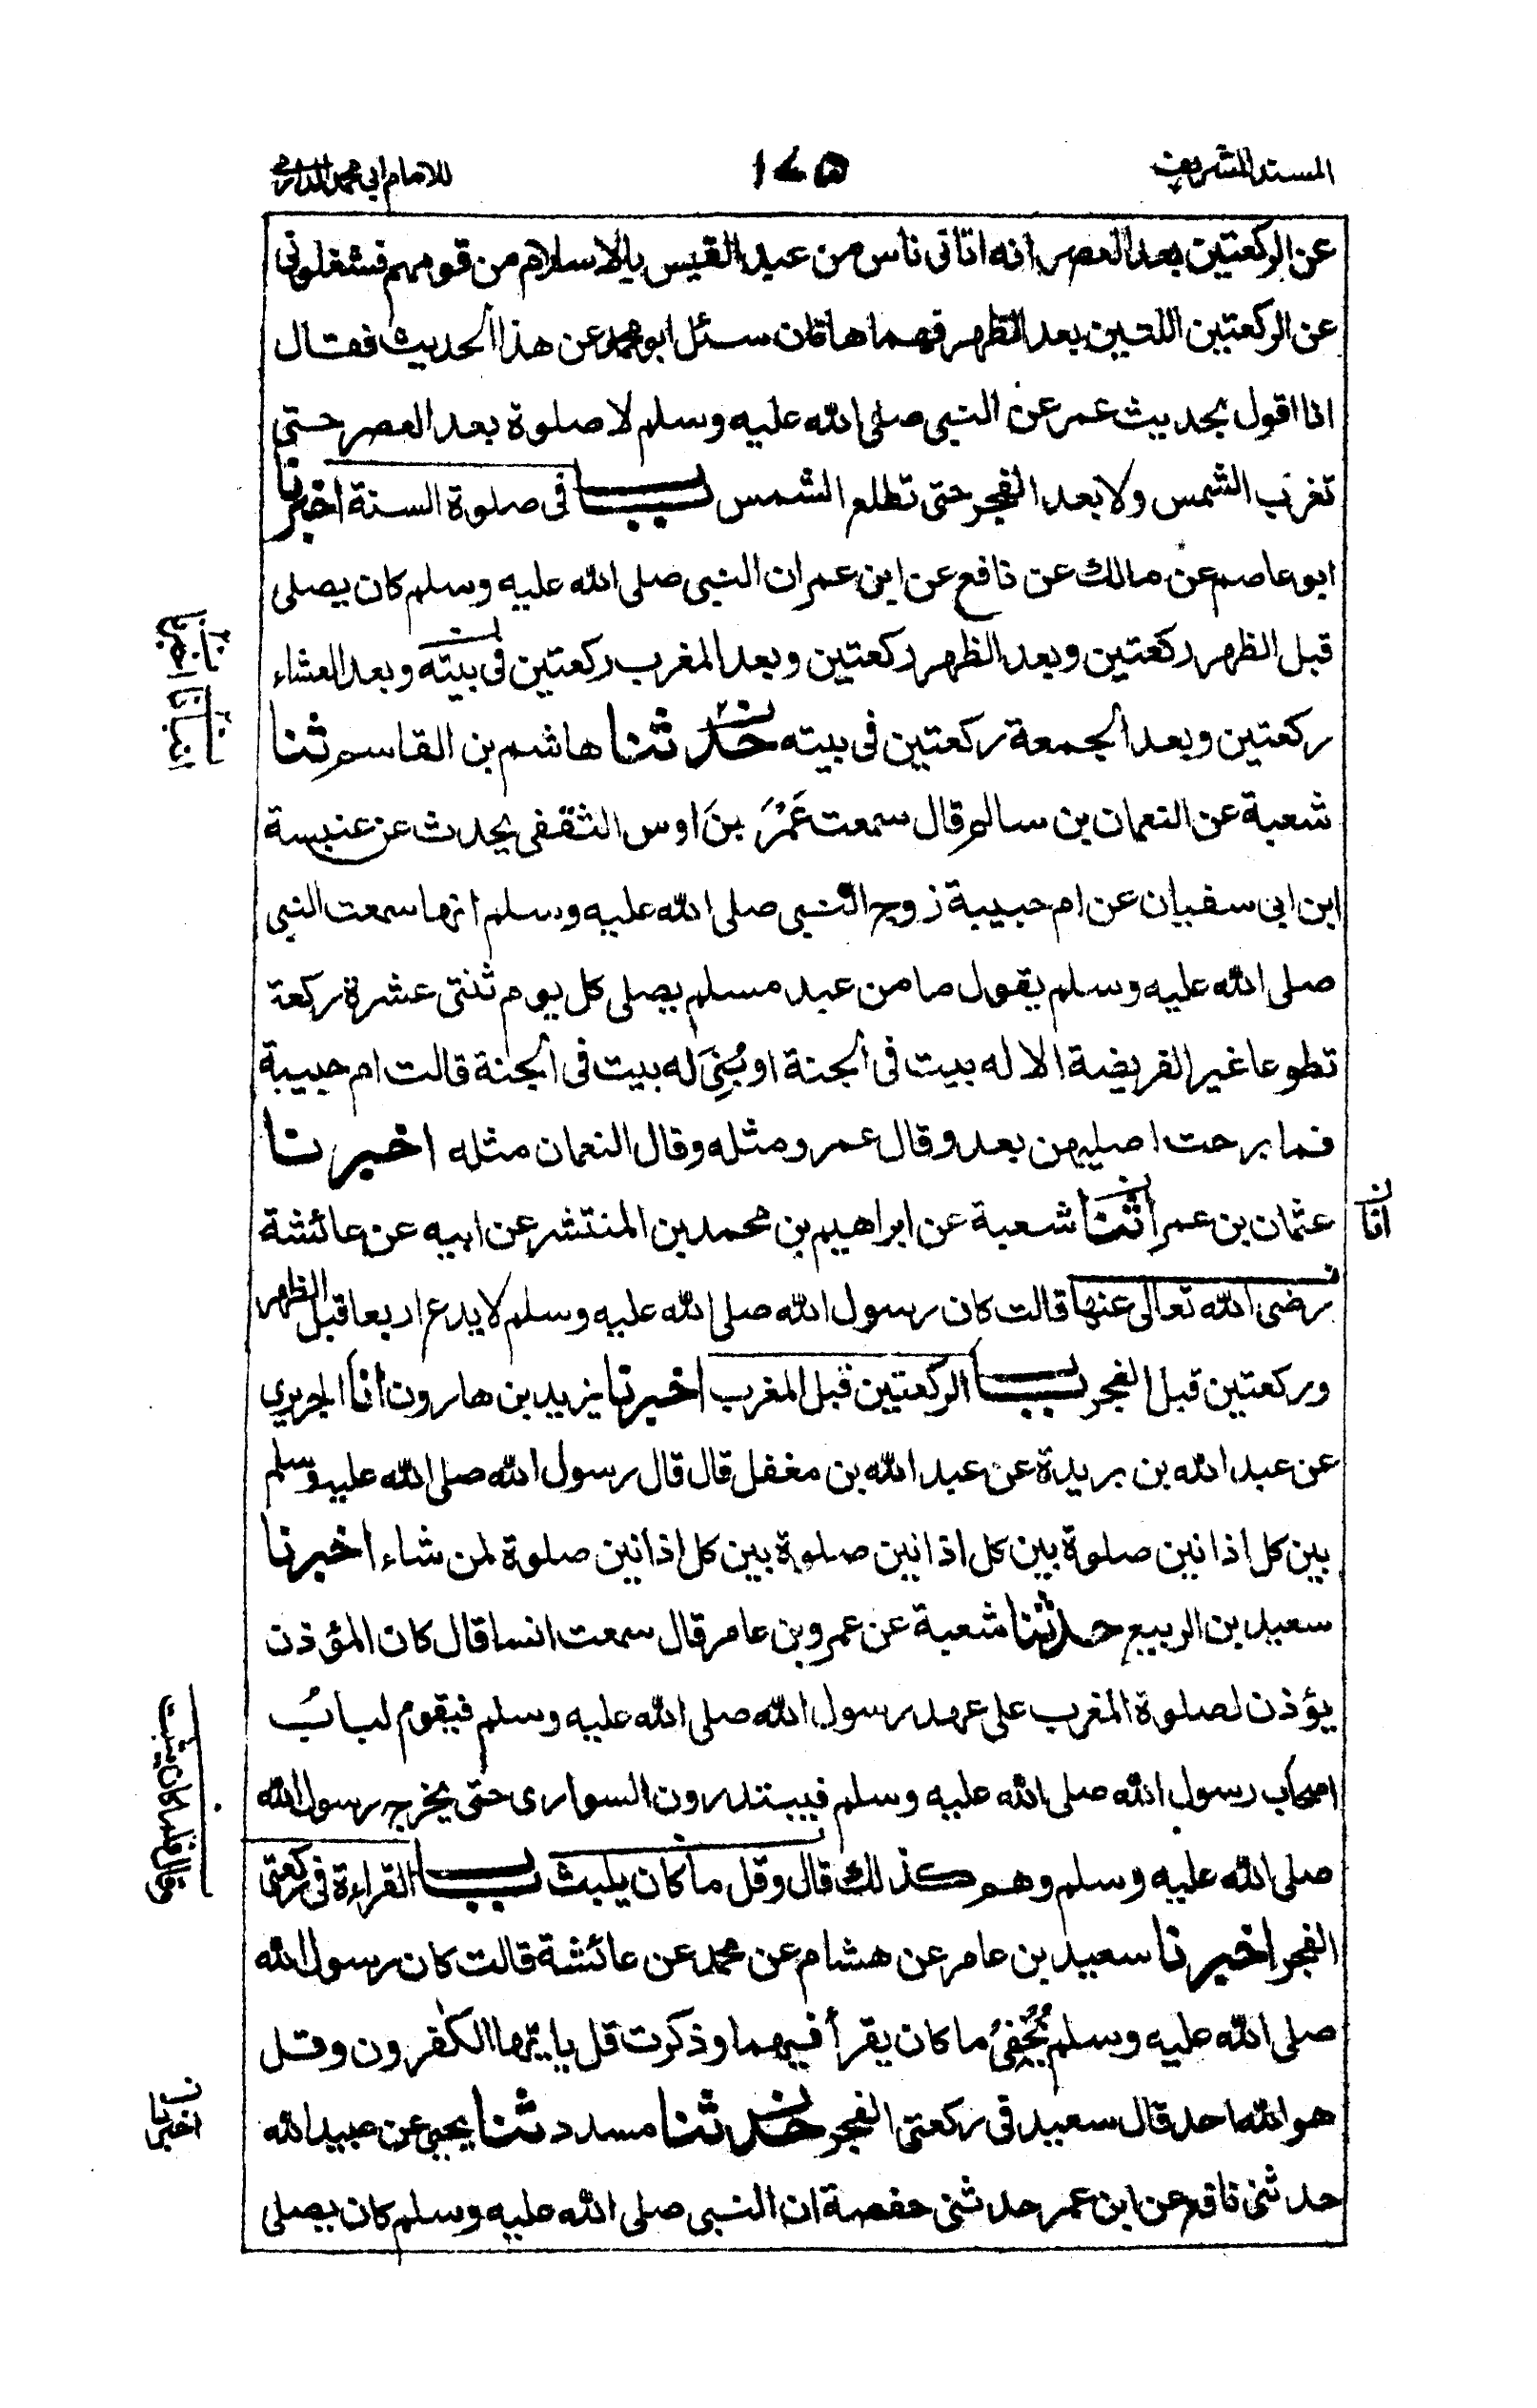 المسند الشريف ١٧٥ للامام ابى محمد الدارمى
عن الركعتين بعد العصر انه اتانى ناس من عبد القيس بالاسلام من قومهم فشغلونى
عن الركعتين اللتين بعد الظهر فهما هاتان سئل ابو محمد عن هذا الحديث فقال
انا اقول بحديث عمر عن النبى صلى الله عليه وسلم لا صلوة بعد العصر حتى
تغرب الشمس ولا بعد الفجر حتى تطلع الشمس باب فى صلوة السنة اخبرنا
ابو عاصم عن مالك عن نافع عن ابن عمر ان النبى صلى الله عليه وسلم كان يصلى
قبل الظهر ركعتين وبعد الظهر ركعتين وبعد المغرب ركعتين فى بيته وبعد العشاء
ركعتين وبعد الجمعة ركعتين فى بيته حدثنا هاشم بن القاسم ثنا
شعبة عن النعمان بن سالم قال سمعت عَمْرَ بنَ اوس الثقفى يحدث عن عنبسة
ابن ابى سفيان عن ام حبيبة زوج النبى صلى الله عليه وسلم انها سمعت النبى
صلى الله عليه وسلم يقول ما من عبد مسلم يصلى كل يوم ثنتى عشرة ركعة
تطوعا غير الفريضة الا له بيت فى الجنة او بُنِىَ له بيت فى الجنة قالت ام حبيبة
فما برحت اصليهن بعد وقال عمرو مثله وقال النعمان مثله اخبرنا
عثمان بن عمر ثنا شعبة عن ابراهيم بن محمد بن المنتشر عن ابيه عن عائشة
رضى الله تعالى عنها قالت كان رسول الله صلى الله عليه وسلم لا يدع اربعا قبل الظهر
وركعتين قبل الفجر باب الركعتين قبل المغرب اخبرنا يزيد بن هارون انا الجريرى
عن عبد الله بن بريدة عن عبد الله بن مغفل قال قال رسول الله صلى الله عليه وسلم
بين كل اذانين صلوة بين كل اذانين صلوة بين كل اذانين صلوة لمن شاء اخبرنا
سعيد بن الربيع حدثنا شعبة عن عمرو بن عامر قال سمعت انسا قال كان المؤذن
يؤذن لصلوة المغرب على عهد رسول الله صلى الله عليه وسلم فيقوم لبابُ
اصحاب رسول الله صلى الله عليه وسلم فيبتدرون السوارى حتى يخرج رسول الله
صلى الله عليه وسلم وهم كذلك قال وقل ما كان يلبث باب القراءة فى ركعتى
الفجر اخبرنا سعيد بن عامر عن هشام عن محمد عن عائشة قالت كان رسول الله
صلى الله عليه وسلم يُخْفِىُ ما كان يقرأ فيهما وذكرت قل يا ايها الكفرون وقل
هو الله احد قال سعيد فى ركعتى الفجر حدثنا مسدد ثنا يحيى عن عبيد الله
حدثنى نافع عن ابن عمر حدثنى حفصة ان النبى صلى الله عليه وسلم كان يصلى
اخبرنا
انبانا
انا
اخبرنا